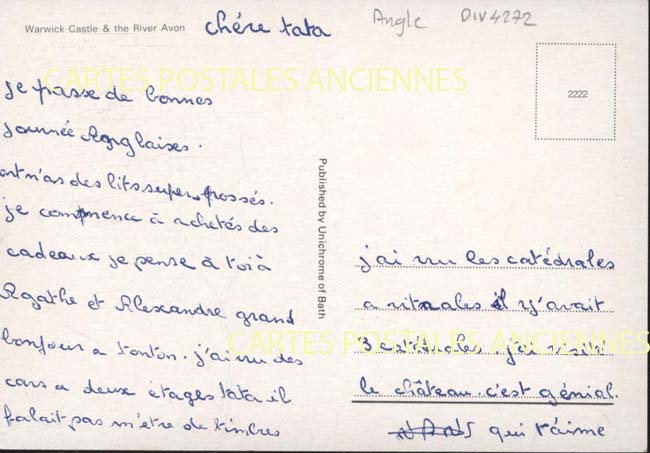 Warwick Castle & the River Avon
chére tata
Angle DIV4272
CARTES POSTALES ANCIENNES
2222
je passe de bonnes
journée Anglaises.
ont n'as des lits super
je commence à achetés des
cadeaux je pense à toi à
Agathe et Alexandre grand
bonjour a tonton. j'ai vu des
cars a deux étages tata il
falait pas m'etre de timbres
Published by Unichrome of Bath
j'ai vu les catédrales
a il y'avait
CARTES POSTALES ANCIENNES
3 j'ai visité
le château. c'est génial.
qui t'aime